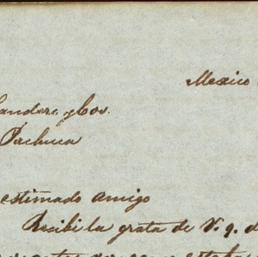 Mexico
Landero y Cos.
Pachuca
estimado amigo
Recibi la grata de V. g. d